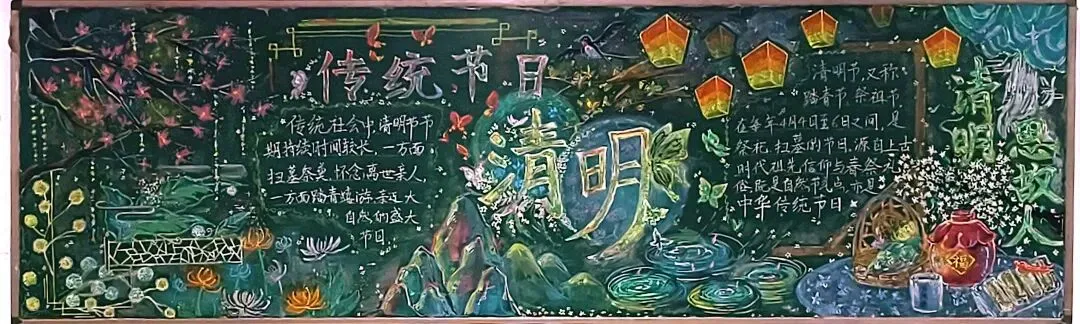 传统节日
传统社会中,清明节节
期持续时间较长,一方面
扫墓祭奠,怀念离世亲人,
一方面踏青嬉游,亲近大
自然的盛大
节日。
清明
清明节,又称
踏春节,祭祖节,
在每年4月4日至6日之间,是
祭祀、扫墓的节日,源自上古
时代祖先信仰与春祭礼
俗,既是自然节气点,亦是
中华传统节日
清明
思故人
福